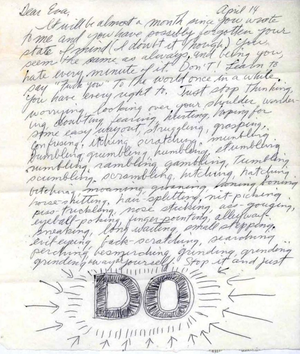 Dear Eva, April 14
It will be almost a month since you wrote
to me and you have possibly forgotten your
state of mind (I doubt it though). You
seem the same as always, and being you,
hate every minute of it. Don't! Learn to
say "Fuck You" to the world once in a while.
You have every right to. Just stop thinking,
worrying, looking over your shoulder, wonder-
ing, doubting, fearing, hurting, hoping for
some easy way out, struggling, grasping,
confusing, itching, scratching, mumbling,
bumbling, grumbling, humbling, stumbling,
rumbling, rambling, gambling, tumbling,
scumbling, scrambling, hitching, hatching,
bitching, moaning, groaning, honing, boning,
horse-shitting, hair-splitting, nit-picking,
piss-trickling, nose sticking, ass-gouging,
eyeball-poking, finger-pointing, alleyway-
sneaking, long waiting, small stepping,
evil-eyeing, back-scratching, searching,
perching, besmirching, grinding, grinding,
grinding away at yourself. Stop it and just
DO